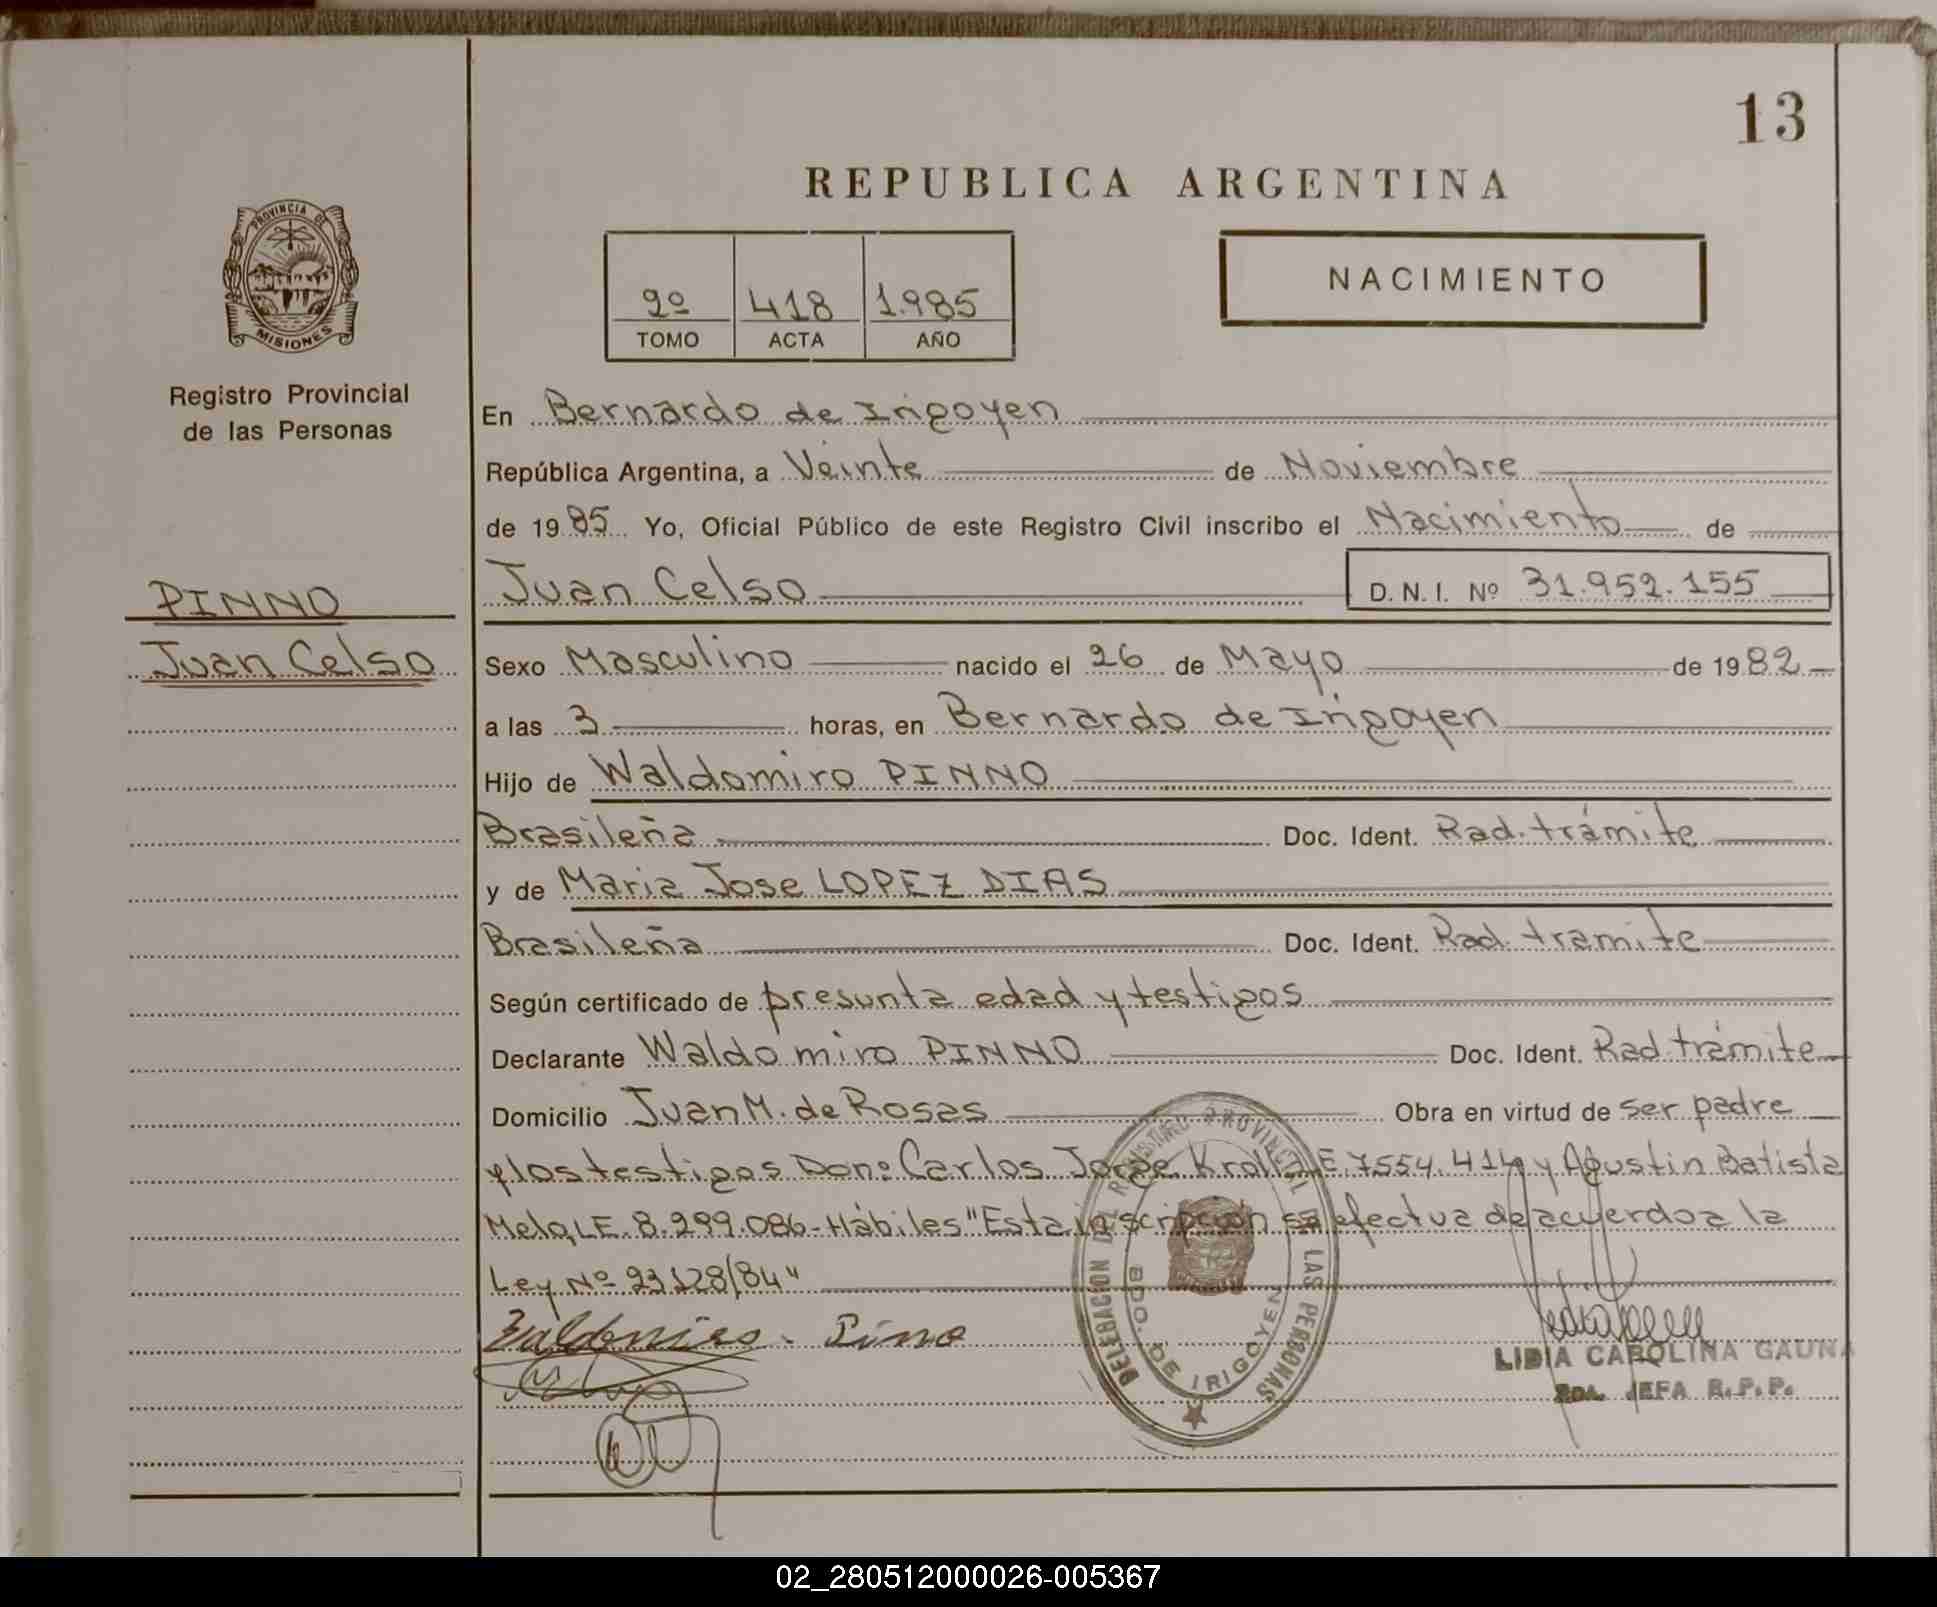 13
REPUBLICA ARGENTINA
PROVINCIA DE
MISIONES
Registro Provincial
de las Personas
2º 418 1.985
TOMO ACTA AÑO
NACIMIENTO
En Bernardo de Irigoyen
República Argentina, a Veinte de Noviembre
de 1985 Yo, Oficial Público de este Registro Civil inscribo el Nacimiento de
PINNO
Juan Celso D. N. I. Nº 31.952.155
Juan Celso
Sexo Masculino nacido el 26 de Mayo de 1982
a las 3 horas, en Bernardo de Irigoyen
Hijo de Waldomiro PINNO
Brasileña Doc. Ident. Rad. trámite
y de Maria Jose LOPEZ DIAS
Brasileña Doc. Ident. Rad. tramite
Según certificado de presunta edad y testigos
Declarante Waldomiro PINNO Doc. Ident. Rad. trámite
Domicilio Juan M. de Rosas Obra en virtud de ser padre
y los testigos Don: Carlos Jorge Kroll L.E. 7.554.414 y Agustin Batista
Melo, L.E. 8.299.086-Hábiles "Esta inscripción se efectua de acuerdo a la
Ley Nº 23128/84"
DELEGACION DEL REGISTRO PROVINCIAL DE LAS PERSONAS
BDO. DE IRIGOYEN
LIDIA CAROLINA GAUNA
JEFA R.P.P.
02_280512000026-005367